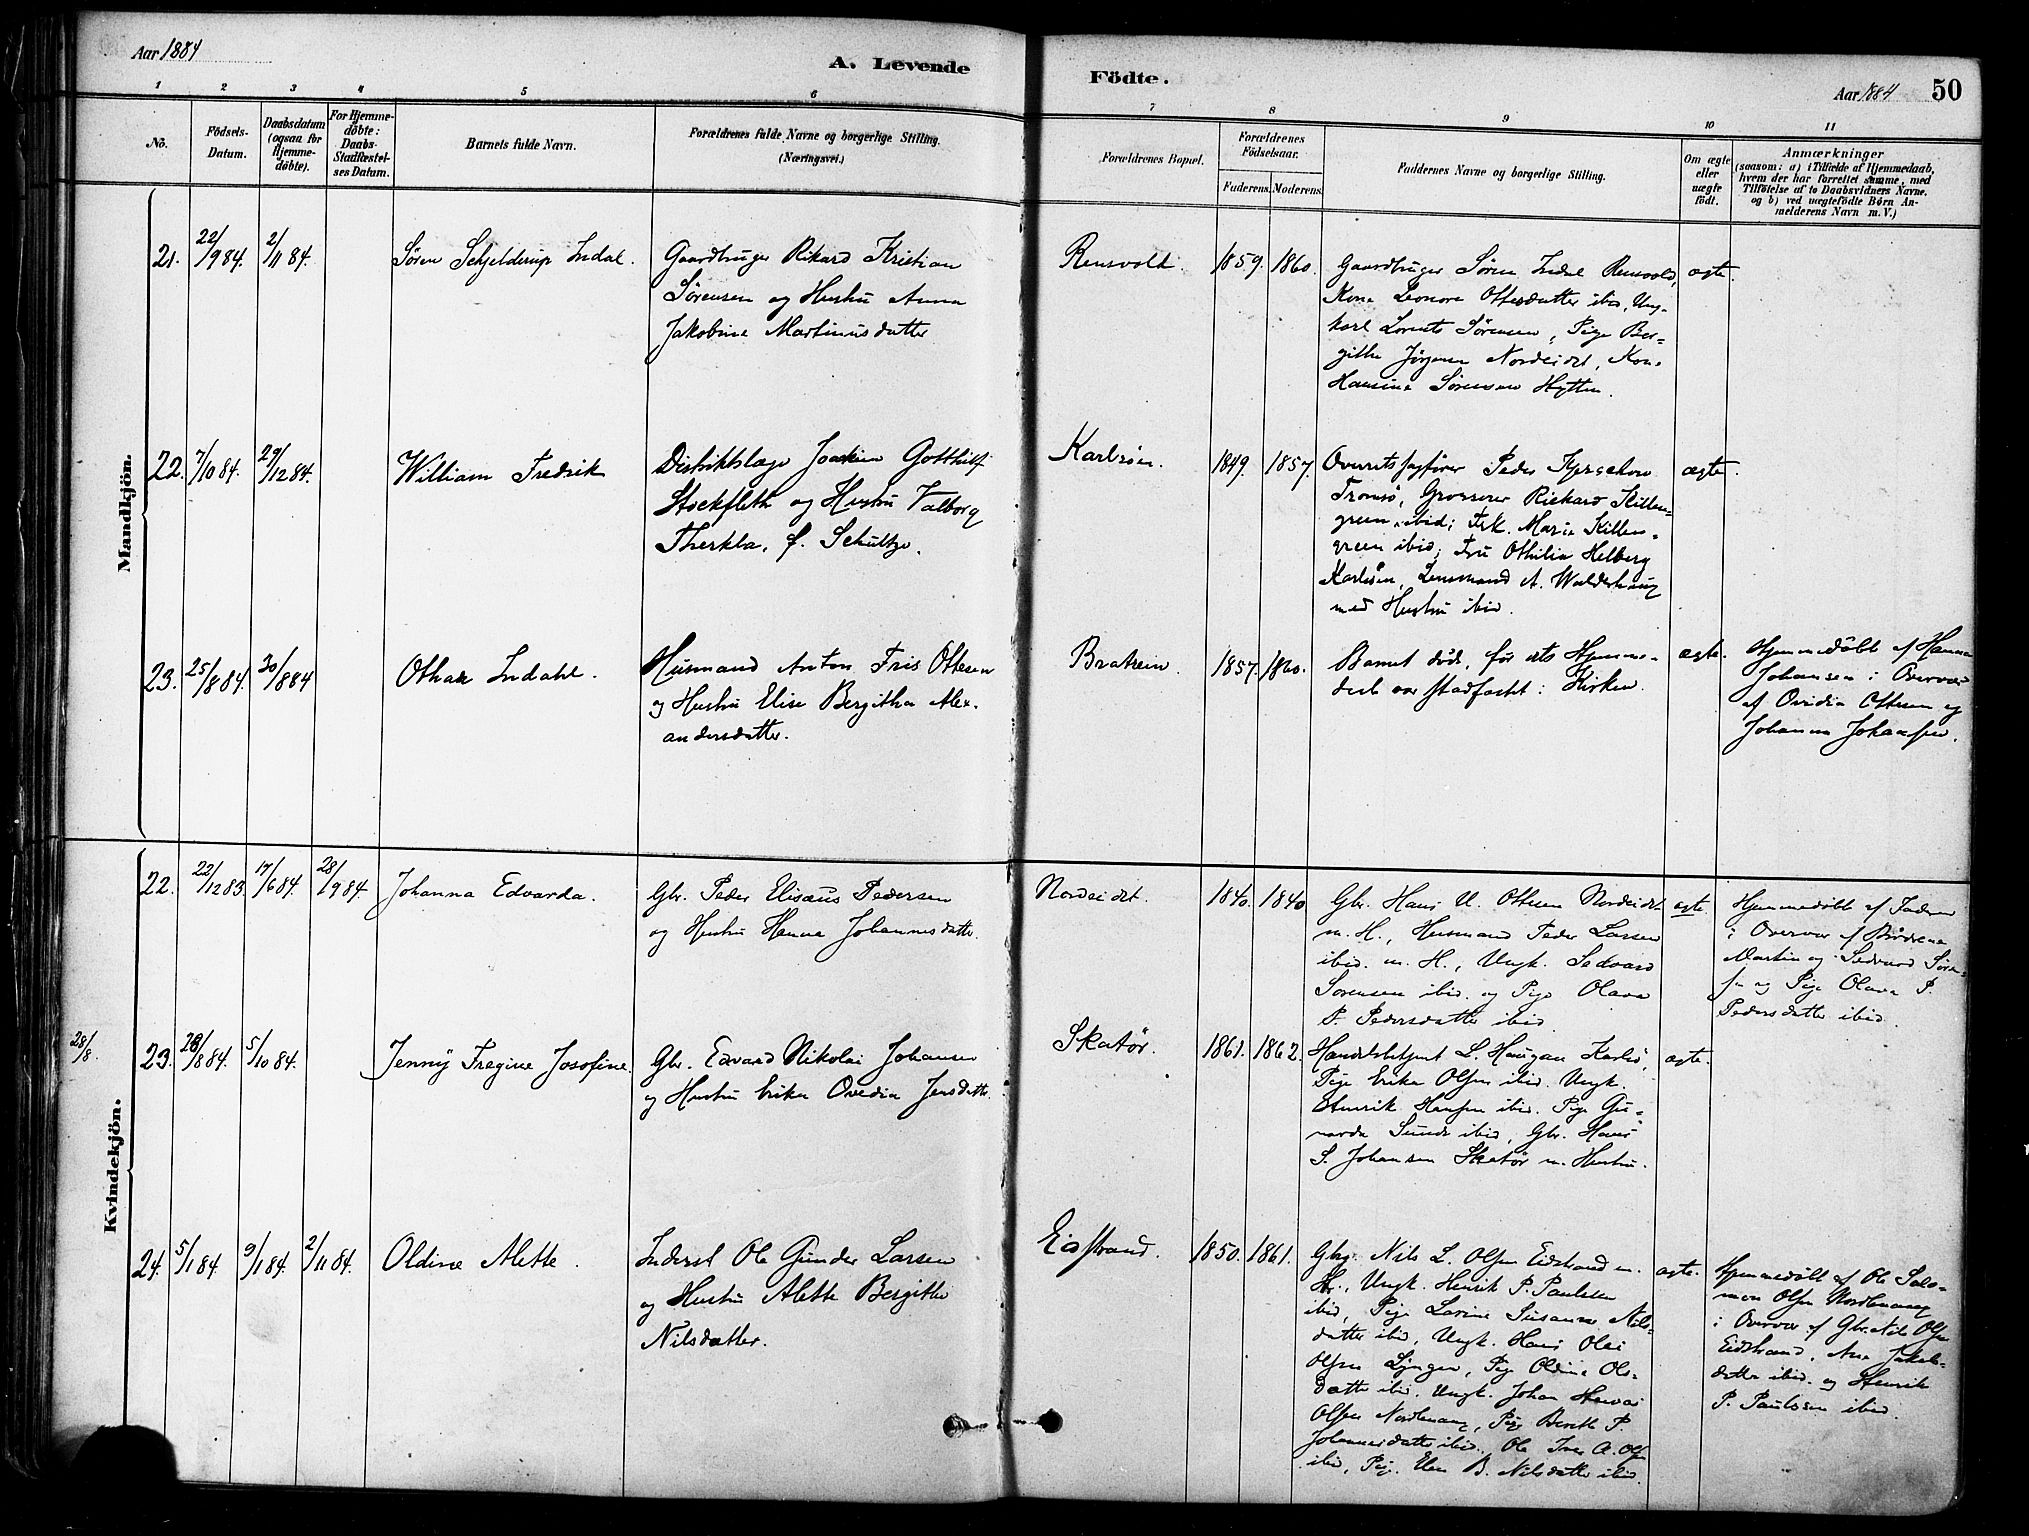 Aar 1884
A. Levende
Födte.
Aar 1884
50
1 2 3 4 5 6 7 8 9 10 11
No.
Födsels-
Datum.
Daabsdatum
(ogsaa for
Hjemme-
döbte).
For Hjemme-
döbte:
Daabs-
Stadfæstel-
ses Datum.
Barnets fulde Navn.
Forældrenes fulde Navne og borgerlige Stilling.
(Næringsvei.)
Forældrenes Bopæl.
Forældrenes
Födselsaar.
Faderens. Moderens.
Faddernes Navne og borgerlige Stilling.
Om ægte
eller
uægte
født.
Anmærkninger
(saasom: a) i Tilfælde af Hjemmedaab,
hvem der har forrettet samme, med
Tilföielse af to Daabsvidners Navne.
og b) ved uægtefödte Börn An-
melderens Navn m. V.)
Mandkjön.
21.
22/9 84.
2/11 84.
Søren Schjelderup Indal.
Gaardbruger Rikard Kristian
Sørensen og Hustru Anna
Jakobine Martinusdatter
Rensvold.
1859.
1860.
Gaardbruger Søren Indal Rensvold,
Kone Leonore Ottesdatter ibid, Ung-
karl Lorents Sørensen, Pige Ber-
githe Jørgensen Nordeidet, Kone
Hansine Sørensen Hytten.
ægte.
22.
7/10 84.
29/12 84.
William Fredrik
Distriktslæge Joakim Gotthilf
Stockfleth og Hustru Valborg
Therkla, f. Schultze.
Karlsøen.
1849.
1857.
Overretssagfører Peder
Tromsø, Grosserer Rickard Killen-
green ibid; Frk. Marie Killen-
green ibid; Fru Othilia Helberg
Karlsøen, Lensmand A. Walderhaug
med Hustru ibid.
ægte.
23.
25/8 84.
30/8 84
Othar Indahl.
Husmand Anton Friis Ottesen
og Hustru Elise Bergitha Alex-
andersdatter.
Bratrein
1857.
1860.
Barnet døde, før dets Hjemme-
daab var stadfæstet i Kirken.
ægte.
Hjemmedøbt af Hanna
Johansen i Overvær
af Ovidia Ottesen og
Johanna Johanssen.
Kvindekjön.
22.
22/12 83.
17/6 84.
28/9 84.
Johanna Edvarda.
Gbr. Peder Elisæus Pedersen
og Hustru Hanna Johannesdatter.
Nordeidet.
1840.
1840
Gbr. Hans U. Ottesen Nordeidet
m. H., Husmand Peder Larsen
ibid. m. H., Ungk. Sedvard
Sørensen ibid. og Pige Olava
P. Pedersdatter ibid.
ægte.
Hjemmedøbt af Faderen
i Overvær af Brødrene
Martin og Sedvard Søren-
sen og Pige Olava P.
Pedersdatter ibid.
28/8.
23.
28/8 84.
5/10 84.
Jenny Fregine Josofine.
Gbr. Edvard Nikolai Johansen
og Hustru Erika Ovedia Jensdatter.
Skatør.
1861.
1862.
Handelsbetjent L. Haugan Karlsø,
Pige Erika Olsen ibid. Ungk.
Henrik Hansen ibid. Pige Gu-
narda Sund ibid, Gbr. Hans
S. Johansen Skatør m. Hustru.
ægte.
24.
5/1 84.
9/1 84.
2/11 84.
Oldine Alette.
Inderst Ole Gunder Larsen
og Hustru Alette Bergitte
Nilsdatter.
Eidstrand.
1850.
1861.
Gbr. Nils L. Olsen Eidstrand m.
H., Ungk. Henrik P. Paulsen
ibid, Pige Larine Susanne Nils-
datter ibid, Ungk. Hans Olai
Olsen Lyngen, Pige Oldine Ols-
datter ibid. Ungk. Johan
Olsen Nordmang, Pige Berith P.
Johannesdatter ibid., Ole Iver A. Olsen
ibid, Pige Elen B. Nilsdatter ibid.
ægte.
Hjemmedøbt af Ole Salo-
mon Olsen Nordmang
i Overvær af Gbr. Nils Olsen
Eidstrand, Ane Jakobs-
datter ibid. og Henrik
P. Paulssen ibid.